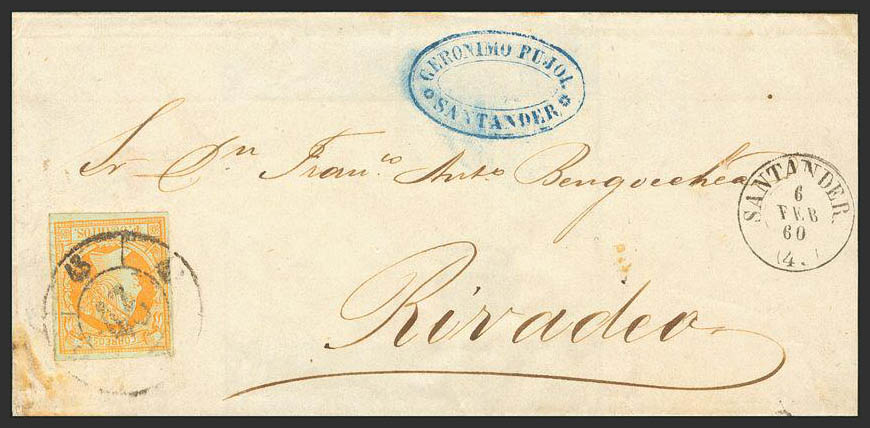 GERONIMO PUJOL
SANTANDER
Sr Dn Franco Anto Bengoechea
SANTANDER.
6
FEB
60
(4.)
CORREOS
Rivadeo